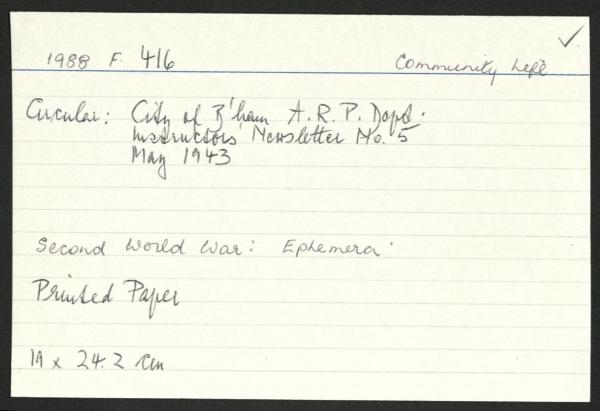 1988 F 416
Community Life
Circular: City of B'ham A.R.P. Dept.
Instructors' Newsletter No. 5
May 1943
Second World War: Ephemera
Printed Paper
19 x 24.2 cm